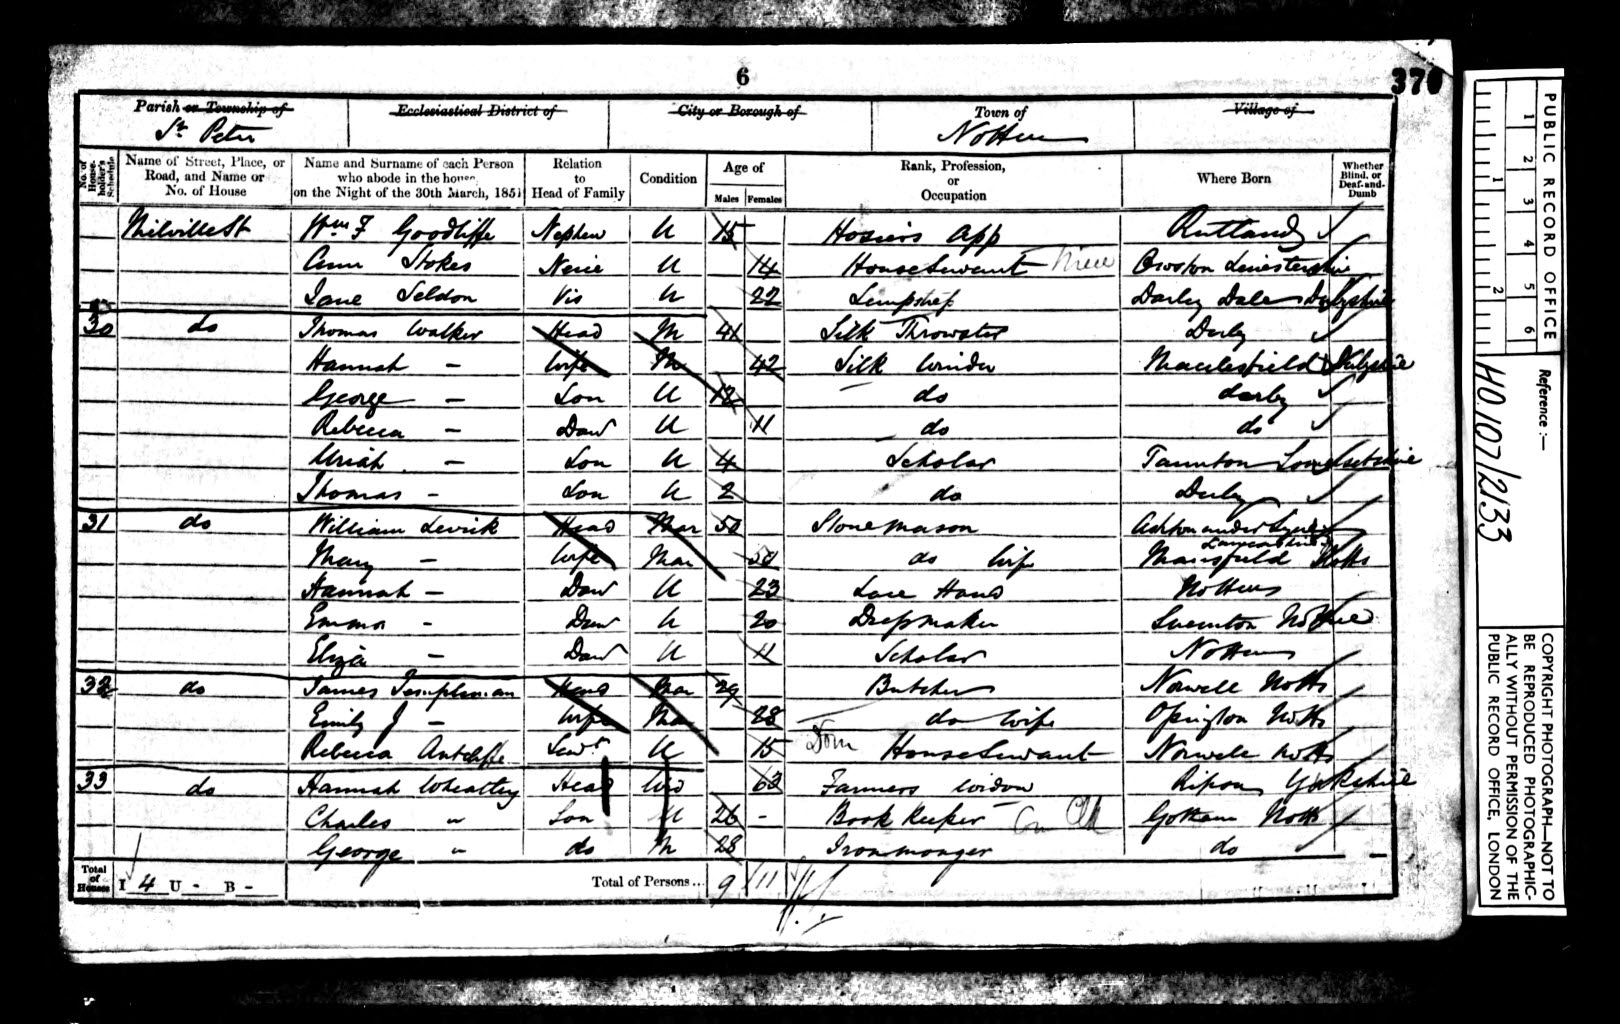 6
370
Parish or Township of Ecclesiastical District of City or Borough of Town of Village of
St Peter Nottm
No. of House-holder's Schedule
Name of Street, Place, or Road, and Name or No. of House
Name and Surname of each Person who abode in the house, on the Night of the 30th March, 1851
Relation to Head of Family
Condition
Age of
Males Females
Rank, Profession, or Occupation
Where Born
Whether Blind, or Deaf-and-Dumb
Milville St Wm F Goodliffe Nephew U 15 Hosiers App Rutland
Ann Stokes Neice U 14 House Servant Niece Owston Leicestershire
Jane Seldon Vis U 22 Sempstress Darley Dale Derbyshire
30 do Thomas Walker Head M 41 Silk Throwster Derby
Hannah - Wife M 42 Silk Winder Macclesfield Derbyshire
George - Son U 12 do Derby
Rebecca - Daur U 11 do do
Uriah - Son U 4 Scholar Taunton Somersetshire
Thomas - Son U 2 do Derby
31 do William Levick Head Mar 50 Stone mason Ashton under Lyne Lancashire
Mary - Wife Mar 50 do Wife Mansfield Notts
Hannah - Daur U 23 Lace Hand Nottm
Emma - Daur U 20 Dressmaker Sneinton Nottshire
Eliza - Daur U 11 Scholar Nottm
32 do James Templeman Head Mar 29 Butcher Norwell Notts
Emily J - Wife Mar 28 do Wife Notts
Rebecca Antcliffe Servt U 15 Dom House Servant Norwell Notts
33 do Hannah Wheatley Head Wid 63 Farmers Widow Ripon Yorkshire
Charles " Son U 26 - Book Keeper Com Clk Gotham Notts
George " do M 28 Ironmonger do
Total of Houses I 4 U - B - Total of Persons... 9 11
PUBLIC RECORD OFFICE
1 2 3 4 5 6
1 2
Reference :-
HO 107/2133
COPYRIGHT PHOTOGRAPH—NOT TO
BE REPRODUCED PHOTOGRAPHIC-
ALLY WITHOUT PERMISSION OF THE
PUBLIC RECORD OFFICE, LONDON